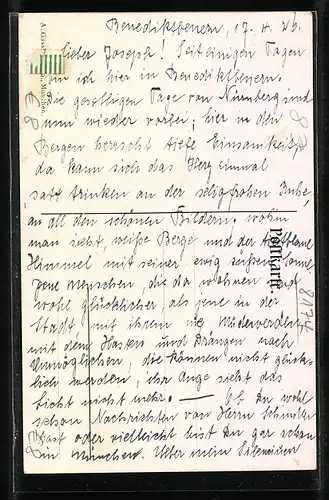 Benediktbeuern, 17. 4. 26.
Lieber Joseph! Seit einigen Tagen
bin ich hier in Benediktbeuern.
Die geselligen Tage von Nürnberg sind
nun wieder vorbei; hier in den
Bergen herrscht tiefe Einsamkeit,
da kann sich das Herz einmal
satt trinken an der seligfrohen Ruhe,
an all den schönen Bildern. Wohin
man sieht, weiße Berge und der
Himmel mit seiner ewig Sonne.
Jene Menschen, die da wohnen sind
wohl glücklicher als jene in der
Stadt mit ihrem nie
mit dem Hasten und Drängen nach
Unmöglichem, die können nicht glück-
lich werden, ihr Auge sieht das
Licht nicht mehr. — Ob Du wohl
schon Nachrichten von Herrn
hast oder vielleicht bist Du gar schon
in München. Ueber mein
Postkarte.
8174